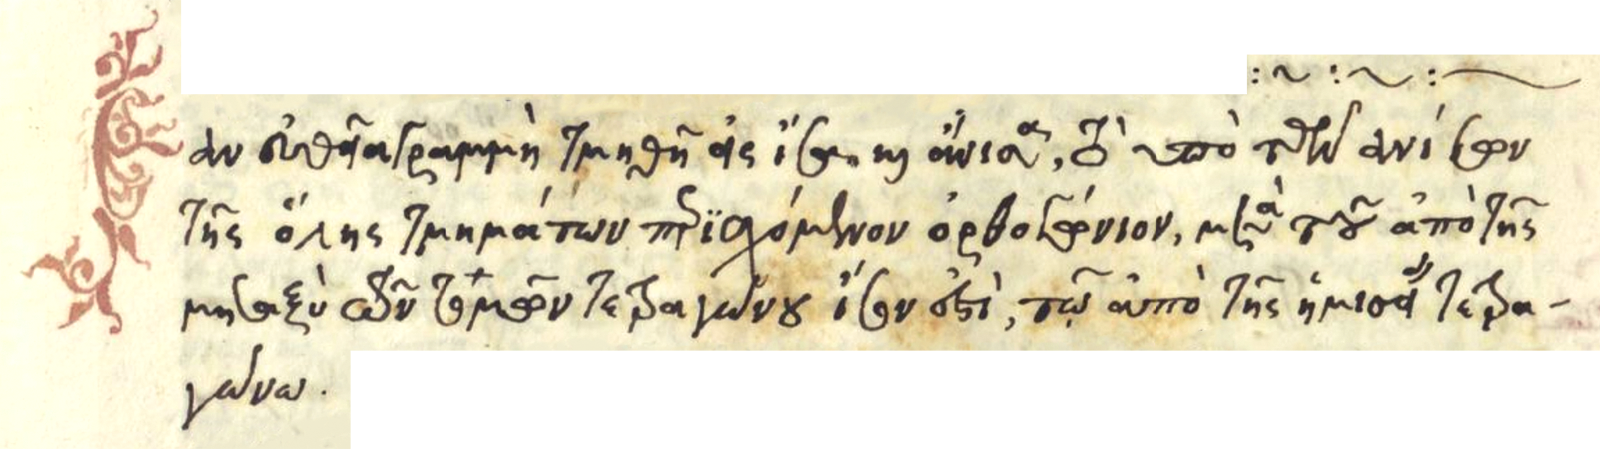 Ἐὰν εὐθεῖα γραμμὴ τμηθῇ εἰς ἴσα καὶ ἄνισα, τὸ ὑπὸ τῶν ἀνίσων
τῆς ὅλης τμημάτων περιεχόμενον ὀρθογώνιον, μετὰ τοῦ ἀπὸ τῆς
μεταξὺ τῶν τομῶν τετραγώνου ἴσον ἐστὶ, τῷ ἀπὸ τῆς ἡμισείας τετρα-
γώνω.